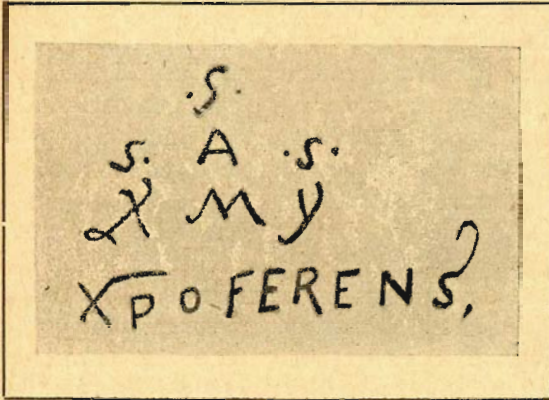 .S.
S. A .S.
X M Y
XPOFERENS,